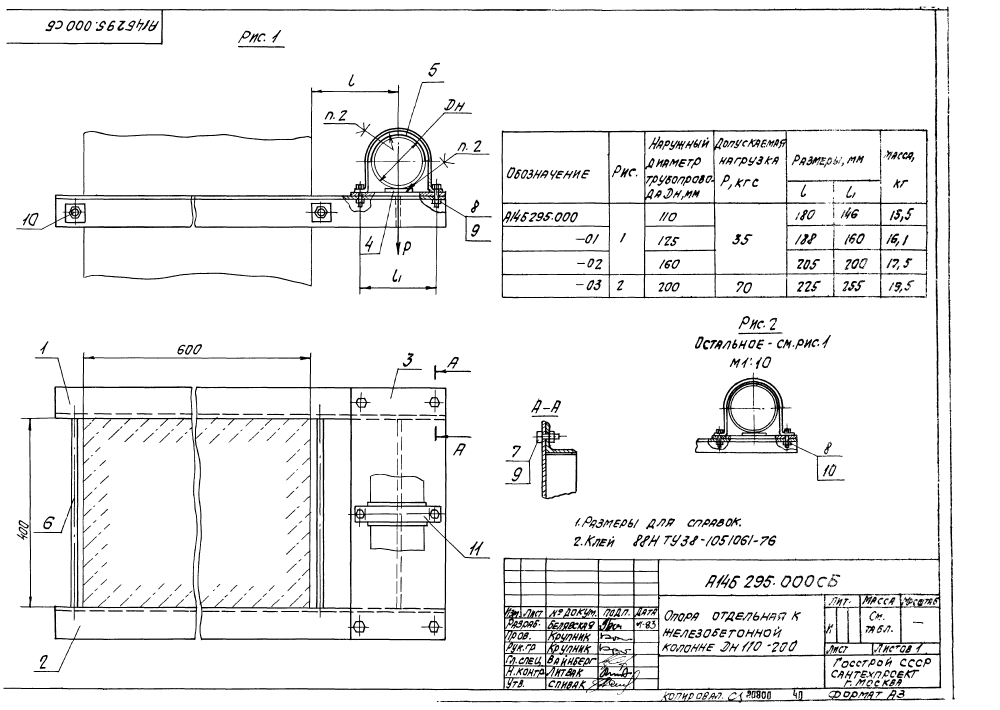 А14Б295.000 СБ
Рис. 1
l
5
Dн
п.2
п.2
10
8
9
4
P
l₁
Обозначение
Рис.
Наружный диаметр трубопровода Dн, мм
Допускаемая нагрузка Р, кгс
Размеры, мм
Масса, кг
l
l₁
А14Б295.000 1 110 35 180 146 15,5
-01 125 188 160 16,1
-02 160 205 200 17,5
-03 2 200 70 225 255 19,5
Рис. 2
Остальное - см. рис. 1
М1:10
8
10
1
600
3
А
А
400
6
11
2
А-А
7
9
1. Размеры для справок.
2. Клей 88Н ТУ38-1051061-76
А14Б 295.000 СБ
Изм. Лист № докум. Подп. Дата
Разраб. Белявская 11-83
Пров. Крупник
Рук.гр Крупник
Гл.спец. Вайнберг
Н.контр. Литвак
Утв. Спивак
Опора отдельная к
железобетонной
колонне Dн 110-200
Лит. Масса Масштаб
И См. табл. —
Лист Листов 1
Госстрой СССР
Сантехпроект
г. Москва
Копировал. 20800 40 Формат А3